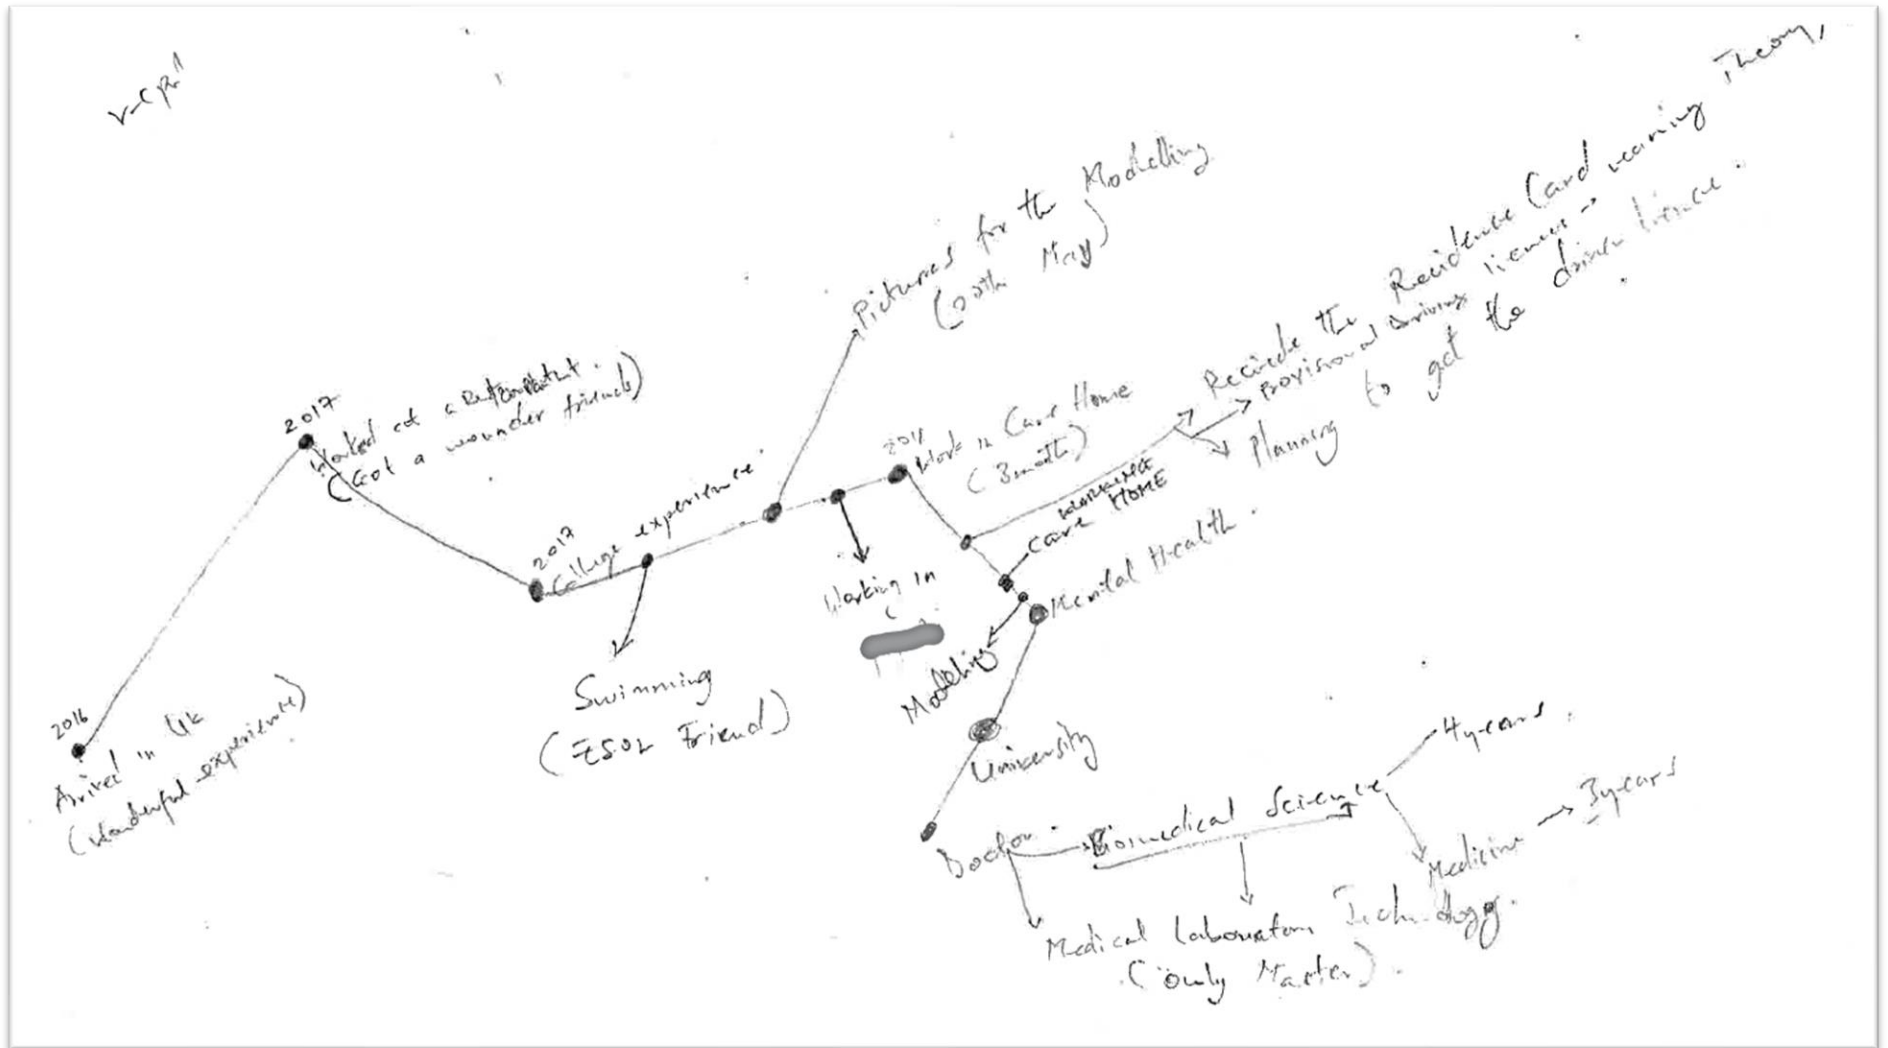 2016
Arrived in UK
(wonderful experience)
2017
Worked at a
(Got a wounder friends)
2017
College experience.
Swimming
(ESOL Friend)
Pictures for the Modelling
May)
Working in
Work in Care Home
(3 month)
Recivde the Recidence Card
Provisional driving licence
Theory,
Planning to get the driver licence.
WORKING
Care HOME
Modeling
Mental Health.
University
Doctor.
Biomedical Science
4 years.
Medicine
3 years
Medical Technology.
(only Master).